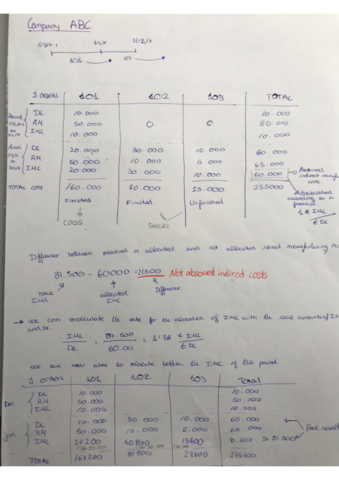 Company ABC
J. orders 101 102 103 TOTAL
DL 10.000 10.000
RM 50.000 0 0 50.000
IMC 10.000 10.000
DL 20.000 30.000 10.000 60.000
RM 50.000 10.000 5.000 65.000
IMC 20.000 30.000 10.000 60.000
TOTAL COST 160.000 70.000 25.000 255000
Finished Finished Unfinished
COGS Stocks
1 € IMC
€ DL
Difference between absorbed or allocated and not allocated indirect manufacturing
81.500 - 60000 = 21500 Not absorbed indirect costs
Total IMC allocated IMC Difference
we can recalculate the rate for the allocation of IMC with the real amounts of IMC
and DL.
IMC = 81.500 = 1'36 € IMC
DL 60.00 € DL
we use new rate to allocate better the IMC of the period.
J. orders 101 102 103 Total
DL 10.000 10.000
RM 50.000 50.000
IMC 10.000 10.000
DL 20.000 30.000 10.000 60.000
RM 50.000 10.000 5.000 65.000
IMC 27.200 40.800 13600 81.600
TOTAL 167.200 80.800 28600 276600